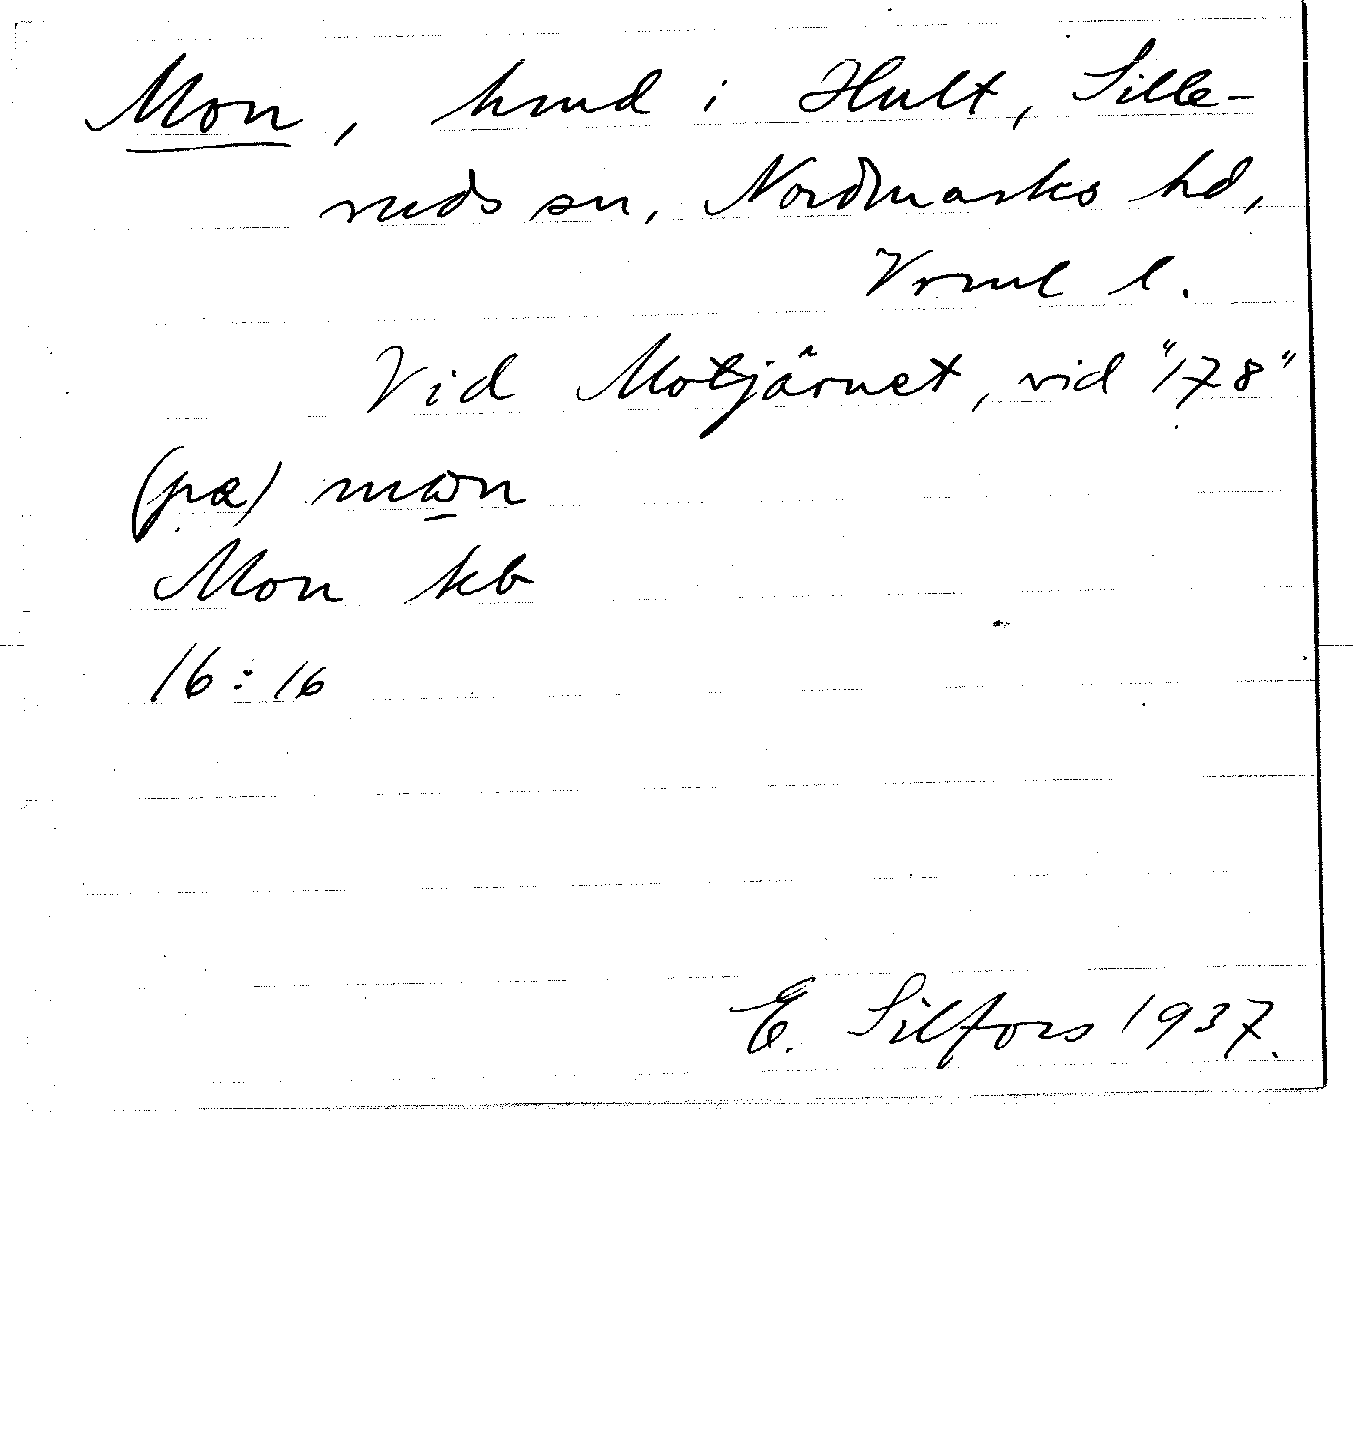 Mon, hmd i Hult, Sille-
ruds sn, Nordmarks hd,
Vrml l.
Vid Motjärnet, vid "178"
(pα) mωn
Mon kb
16:16
E. Silfors 1937.